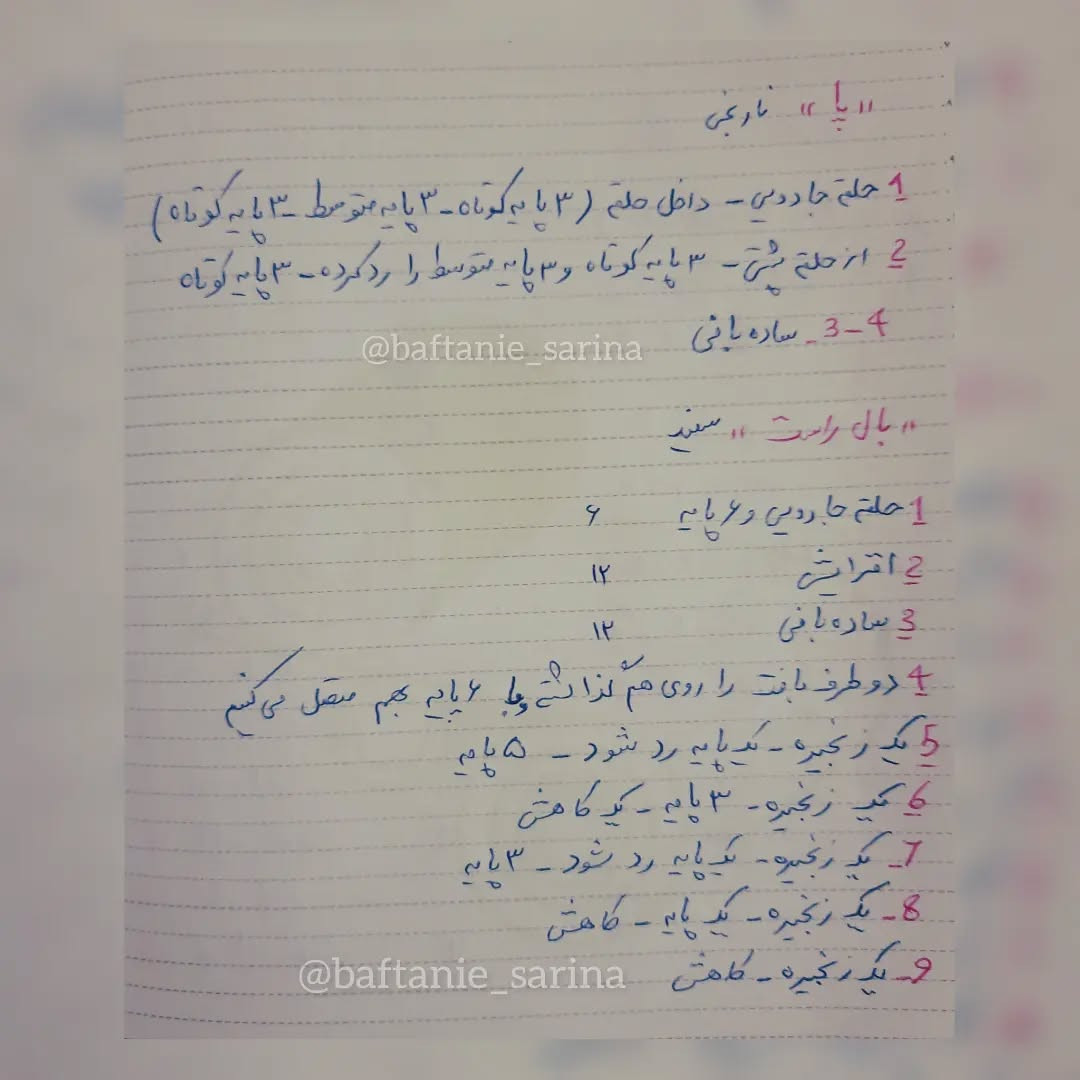 «پا» نارنجی
1 حلقه جادویی - داخل حلقه (۳ پایه کوتاه - ۳ پایه متوسط - ۳ پایه کوتاه)
2 از حلقه پشتی - ۳ پایه کوتاه و ۳ پایه متوسط را رد کرده - ۳ پایه کوتاه
3-4 - ساده بافی
@baftanie_sarina
«بال راست» سفید
1 حلقه جادویی و ۶ پایه ۶
2 افزایش ۱۲
3 ساده بافی ۱۲
4 دو طرف بافت را روی هم گذاشته و با ۶ پایه بهم متصل می کنیم
5 یک زنجیره - یک پایه رد شود - ۵ پایه
6 یک زنجیره - ۳ پایه - یک کاهش
7 - یک زنجیره - یک پایه رد شود - ۳ پایه
8 - یک زنجیره - یک پایه - کاهش
9 - یک زنجیره - کاهش
@baftanie_sarina